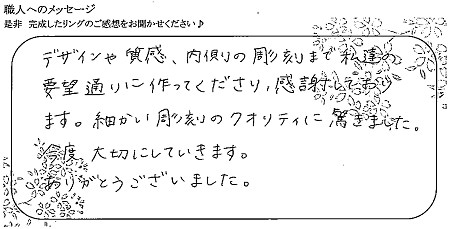 職人へのメッセージ
是非 完成したリングのご感想をお聞かせください♪
デザインや質感、内側の彫刻まで私達の
要望通りに作ってくださり、感謝しており
ます。細かい彫刻のクオリティに驚きました。
今度、大切にしていきます。
ありがとうございました。